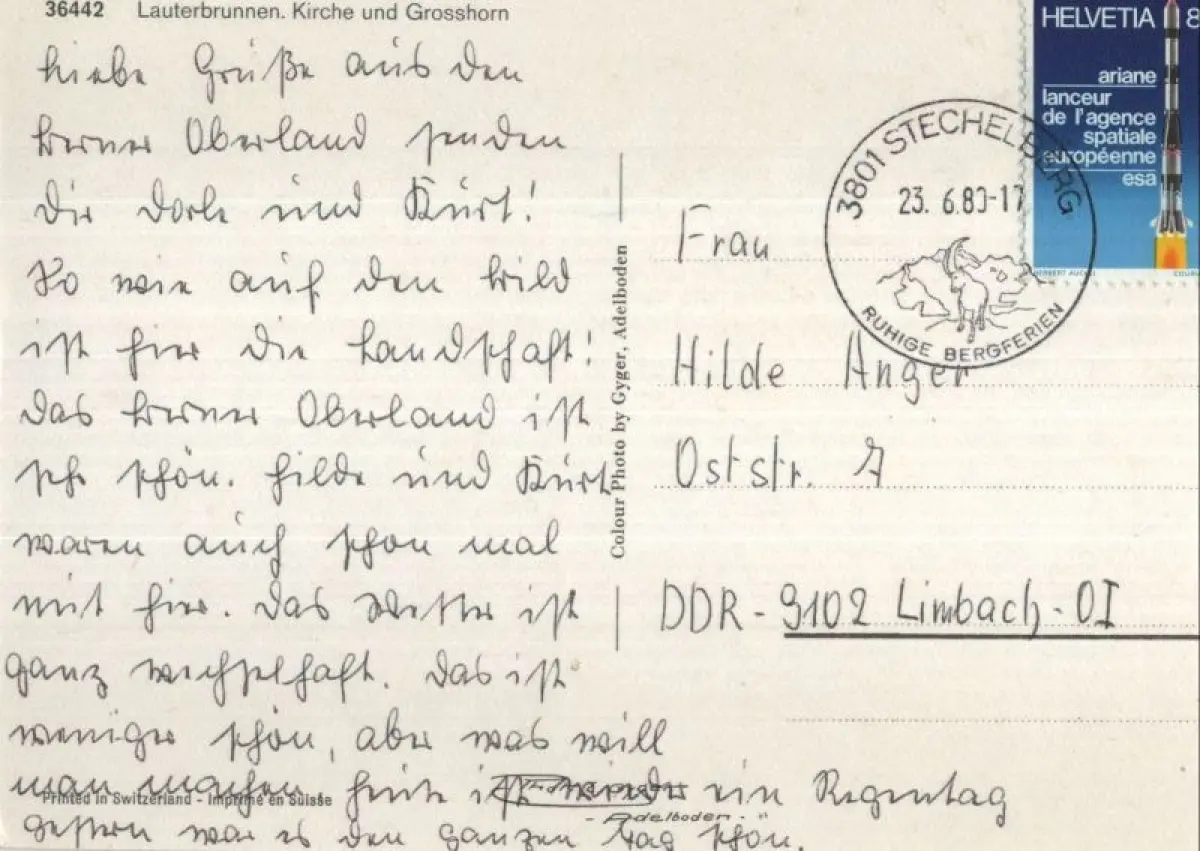 36442 Lauterbrunnen. Kirche und Grosshorn
Liebe Grüße aus dem
Berner Oberland senden
Dir Dorle und Kurt!
So wie auf dem Bild
ist hier die Landschaft!
Das Berner Oberland ist
sehr schön. Hilde und Kurt
waren auch schon mal
mit hier. Das Wetter ist
ganz wechselhaft. Das ist
weniger schön, aber was will
man machen. Heute ist wieder ein Regentag
gestern war es den ganzen Tag schön.
Printed in Switzerland - Imprimé en Suisse
Adelboden
Colour Photo by Gyger, Adelboden
HELVETIA 8
ariane
lanceur
de l'agence
spatiale
européenne
esa
3801 STECHELBERG
23. 6.80-17
RUHIGE BERGFERIEN
Frau
Hilde Anger
Oststr. 7
DDR - 9102 Limbach - OI